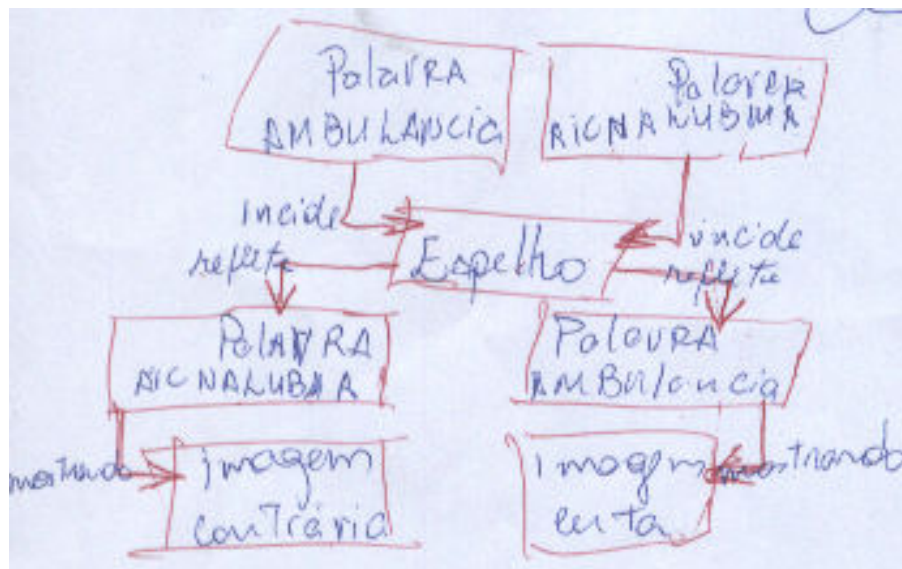 PalavRA
AMBULANCia
Palavra
AICNALUBMA
incide
reflete
Espelho
incide
reflete
PALAVRA
AICNALUBMA
PalavRA
AMBUlancia
mostrando
imagem
contrária
imagem
certa
mostrando